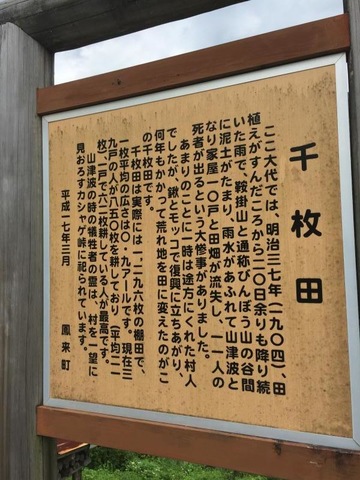 千枚田
ここ大代では、明治三七年(一九〇四)、田
植えがすんだころから二〇日余りも降り続
いた雨で、鞍掛山と通称びんぼう山の谷間
に泥土がたまり、雨水があふれて山津波と
なり家屋一〇戸と田畑が流失し、一一人の
死者が出るという大惨事がありました。
あまりのことに一時は途方にくれた村人
でしたが、鍬とモッコで復興に立ちあがり、
何年もかかって荒れ地を田に変えたのがこ
の千枚田です。
千枚田は実際には一、二九六枚の棚田で、
一枚平均の広さは〇・九アールです。現在三
九戸の人が八五〇枚を耕しており(平均二一
枚)、一戸で六二枚耕している人が最高です。
山津波の時の犠牲者の霊は、村を一望に
見おろすカシャゲ峠に祀られています。
平成一七年三月　鳳来町